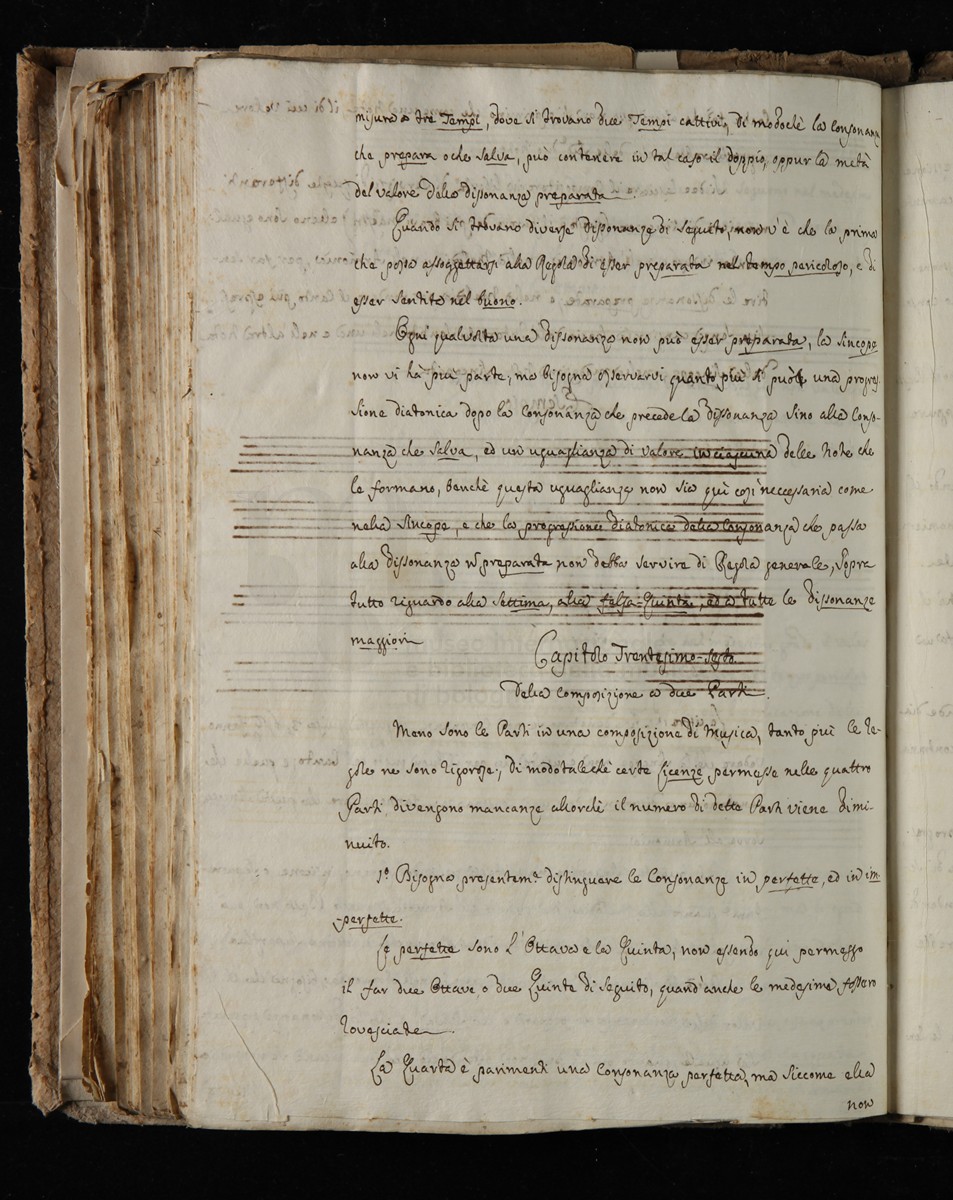 misura a tre Tempi, dove si trovano due Tempi cattivi, di modochè la consonanza
che prepara o che salva, può contenere in tal caso il doppio, oppur la metà
del valore della dissonanza preparata.
Quando si trovano diverse dissonanze di seguito, non v'è che la prima
che possa assoggettarsi alla Regola di esser preparata nel tempo pericoloso, e di
esser sentita nel buono.
Ogni qualvolta una dissonanza non può esser preparata, la sincope
non vi hà più parte, ma bisogna osservarvi quanto più si puole una progres
sione diatonica dopo la Consonanza che precede la dissonanza sino alla Conso-
nanza che salva, ed un uguaglianza di valore in ciascuna delle Note che
le formano, benchè questa uguaglianza non sia quì così neccessaria come
nella sincope, e che la progressione diatonica della Consonanza che passa
alla dissonanza preparata non debba servire di Regola generale, sopra
tutto riguardo alla settima, alla falsa-Quinta, ed a tutte le dissonanze
maggiori
Capitolo Trentesimo-sesto
Della composizione a due Parti.
Meno sono le Parti in una composizione di Musica, tanto più le re-
gole ne sono rigorose, di modotalechè certe licenze permesse nelle quattro
Parti divengono mancanze allorchè il numero di dette Parti viene dimi-
nuito.
1.° Bisogna presentem.e distinguere le Consonanze in perfette, ed in im-
perfette.
Le perfette sono l'Ottava e la Quinta, non essendo qui permesso
il far due Ottave, o due Quinte di seguito, quand'anche le medesime fossero
rovesciate.
La Quarta è parimenti una Consonanza perfetta, ma siccome ella
non